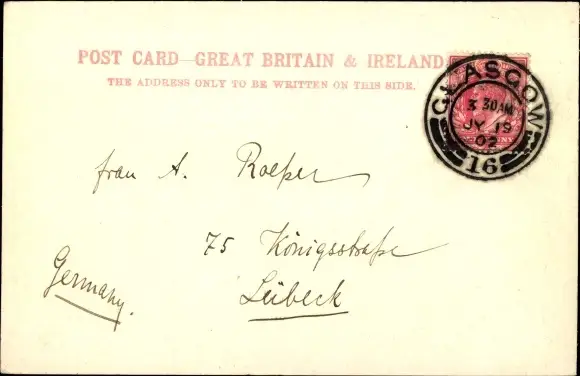 POST CARD—GREAT BRITAIN & IRELAND
THE ADDRESS ONLY TO BE WRITTEN ON THIS SIDE.
GLASGOW
3 30AM
JY 19
02
16
frau A. Roeper
75 Königsstraße
Lübeck
Germany.